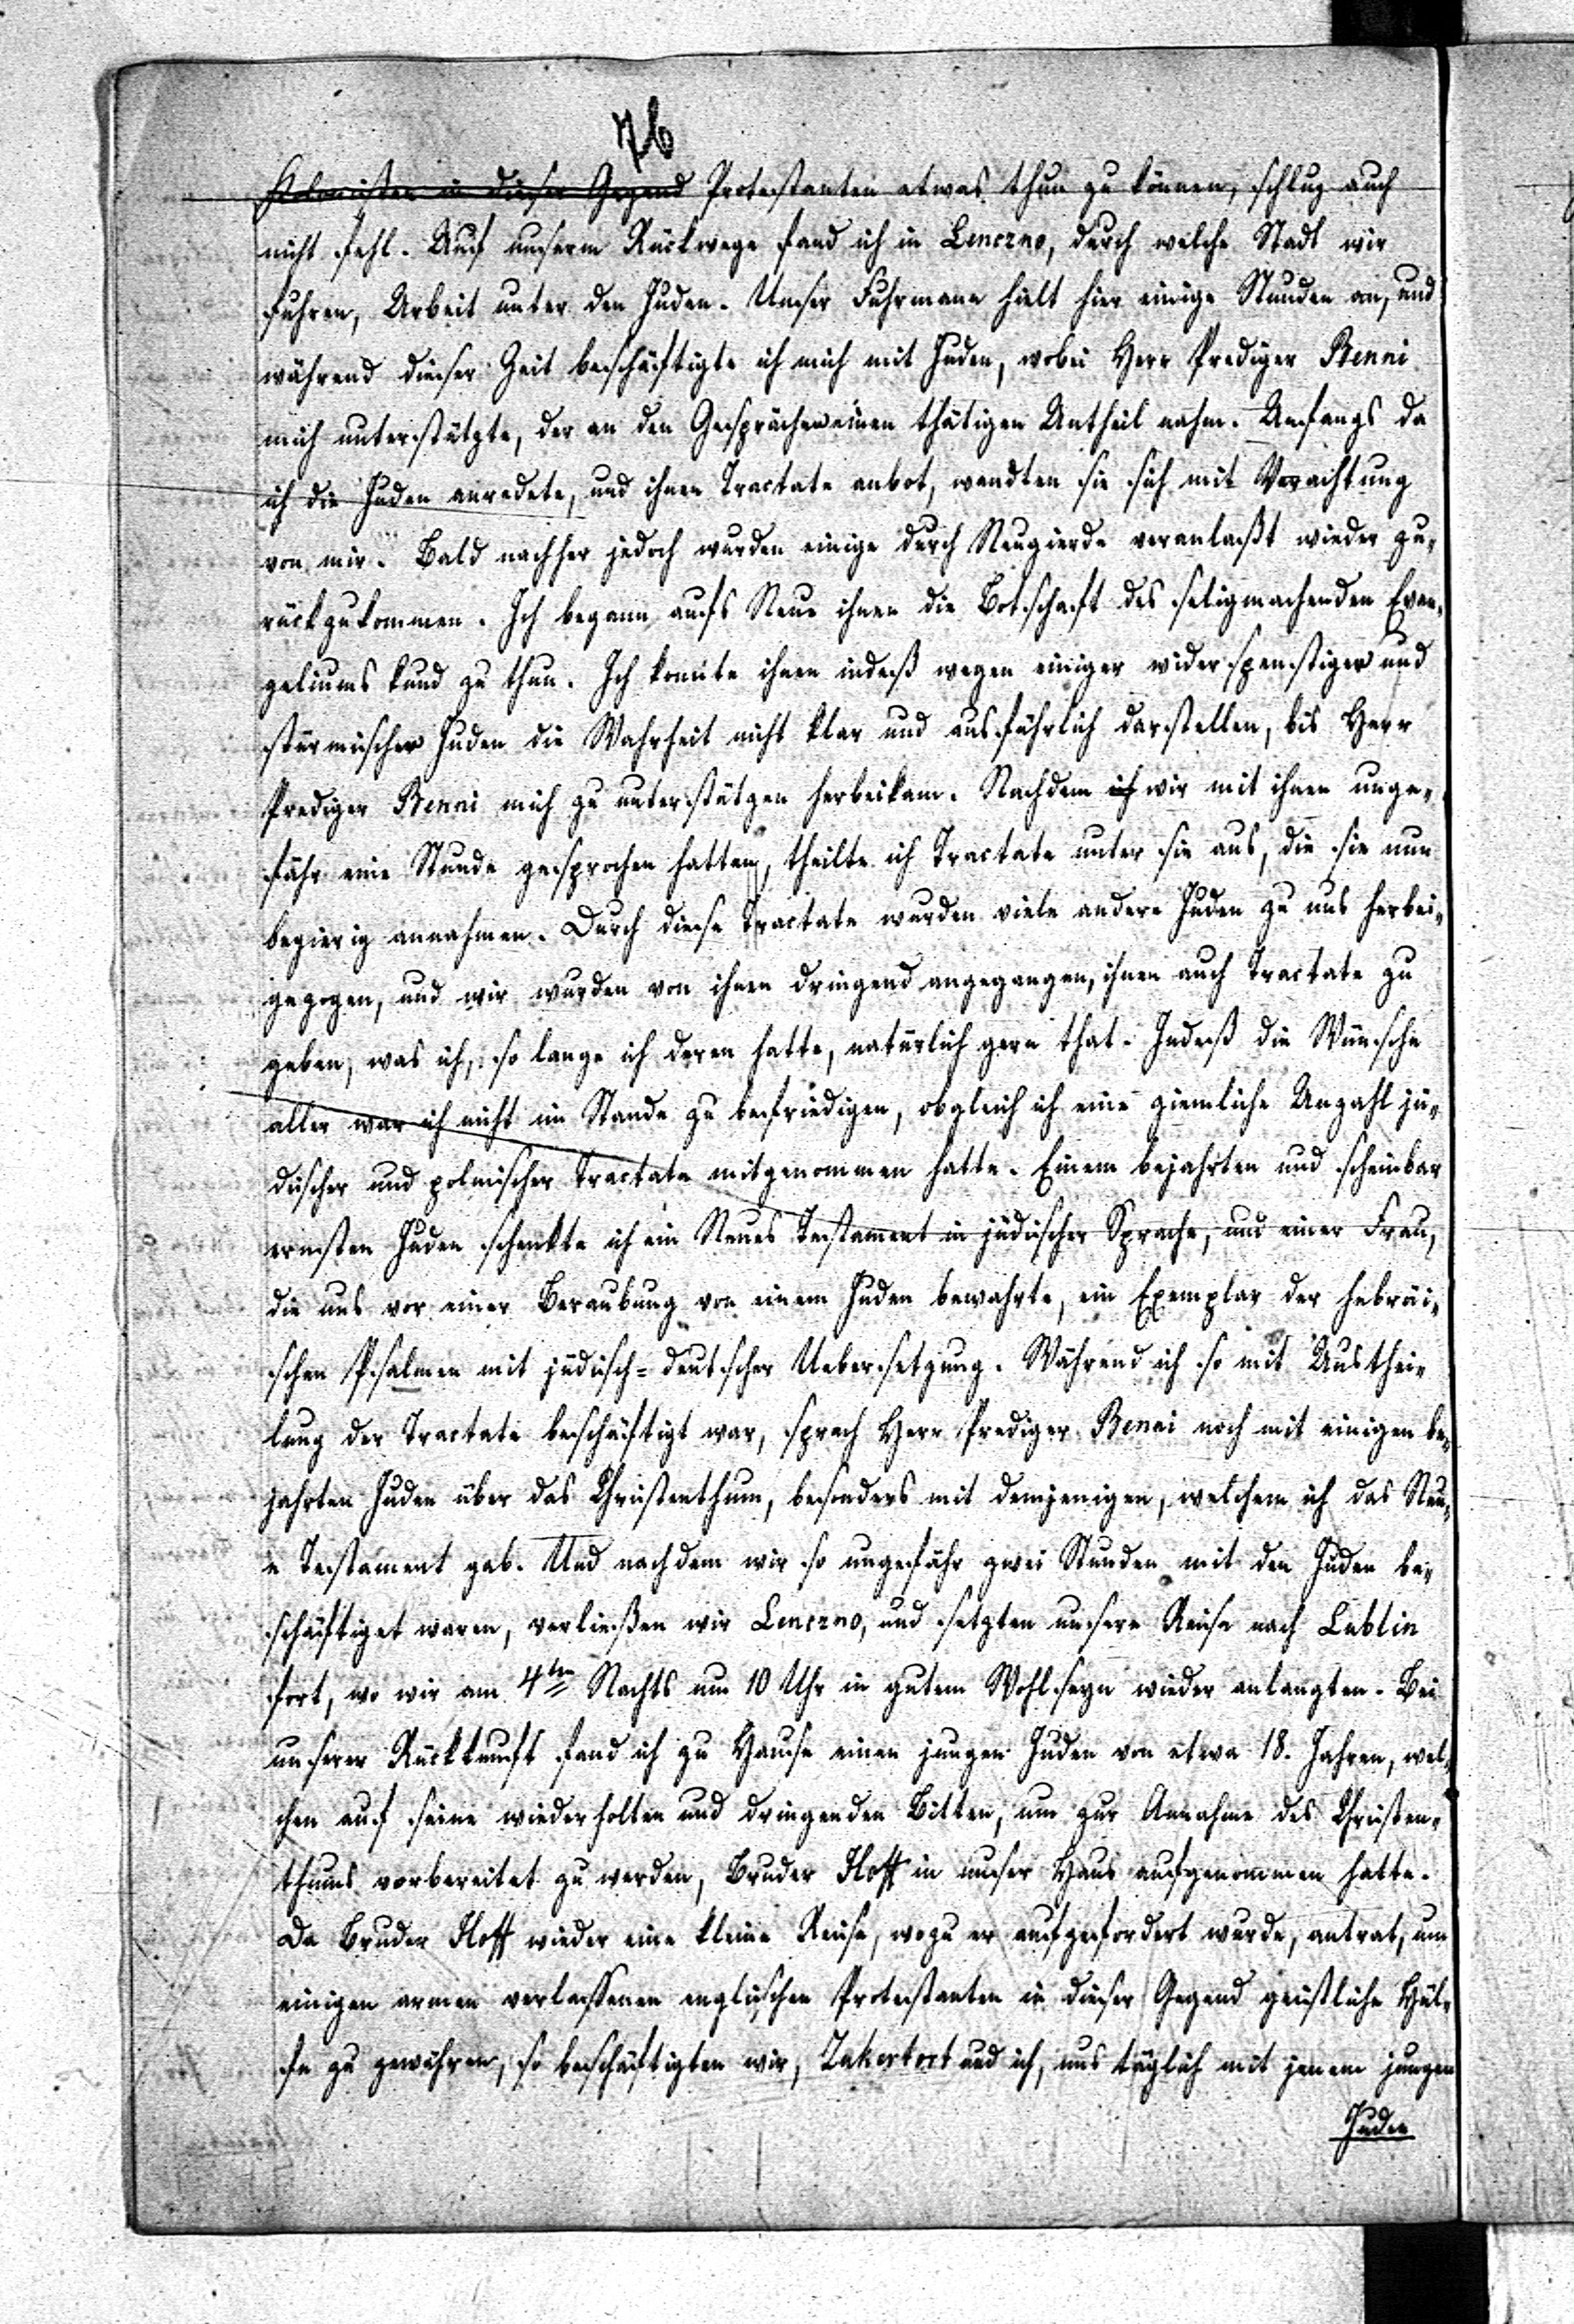 76
Kolonisten in dieser Gegend Protestanten etwas thun zu können, schlug auch
nicht fehl. Auf unserm Rückwege fand ich in Lenczno, durch welche Stadt wir
fuhren, Arbeit unter den Juden. Unser Fuhrmann hielt hier einige Stunden an, und
während dieser Zeit beschäftigte ich mich mit Juden, wobei Herr Prediger Benni
mich unterstützte, der an den Gesprächen einen thätigen Antheil nahm. Anfangs da
ich die Juden anredete, und ihnen Tractate anbot, wandten sie sich mit Verachtung
von mir. Bald nachher jedoch wurden einige durch Neugierde veranlaßt wieder zu-
rückzukommen. Ich begann aufs Neue ihnen die Botschaft des seligmachenden Evan-
geliums kund zu thun. Ich konnte ihnen indeß wegen einiger widerspenstiger und
stürmischer Juden die Wahrheit nicht klar und ausführlich darstellen, bis Herr
Prediger Benni mich zu unterstützen herbeikam. Nachdem ich wir mit ihnen unge-
fähr eine Stunde gesprochen hatten, theilte ich Tractate unter sie aus, die sie nun
begierig annahmen. Durch diese Tractate wurden viele andere Juden zu uns herbei-
gezogen, und wir wurden von ihnen dringend angegangen, ihnen auch Tractate zu
geben, was ich, so lange ich deren hatte, natürlich gern that. Indeß die Wünsche
aller war ich nicht im Stande zu befriedigen, obgleich ich eine ziemliche Anzahl jü-
discher und polnischer Tractate mitgenommen hatte. Einem bejahrten und scheinbar
ernsten Juden schenkte ich ein Neues Testament in jüdischer Sprache, und einer Frau,
die uns vor einer Beraubung von einem Juden bewahrte, ein Exemplar der hebräi-
schen Psalmen mit jüdisch-deutscher Uebersetzung. Während ich so mit Austhei-
lung der Tractate beschäftigt war, sprach Herr Prediger Benni noch mit einigen be-
jahrten Juden über das Christenthum, besonders mit demjenigen, welchem ich das Neu-
e Testament gab. Und nachdem wir so ungefähr zwei Stunden mit den Juden be-
schäftiget waren, verließen wir Lenczno, und setzten unsere Reise nach Lublin
fort, wo wir am 4ten Nachts um 10 Uhr in gutem Wohlseyn wieder anlangten. Bei
unserer Rückkunft fand ich zu Hause einen jungen Juden von etwa 18. Jahren, wel-
chen auf seine wiederholten und dringenden Bitten, um zur Annahme des Christen-
thums vorbereitet zu werden, Bruder Hoff in unser Haus aufgenommen hatte.
Da Bruder Hoff wieder eine kleine Reise, wozu er aufgefordert wurde, antrat, um
einigen armen verlassenen englischen Protestanten in dieser Gegend geistliche Hül-
fe zu gewähren, so beschäftigten wir, Zakertort und ich, uns täglich mit jenem jungen
Juden